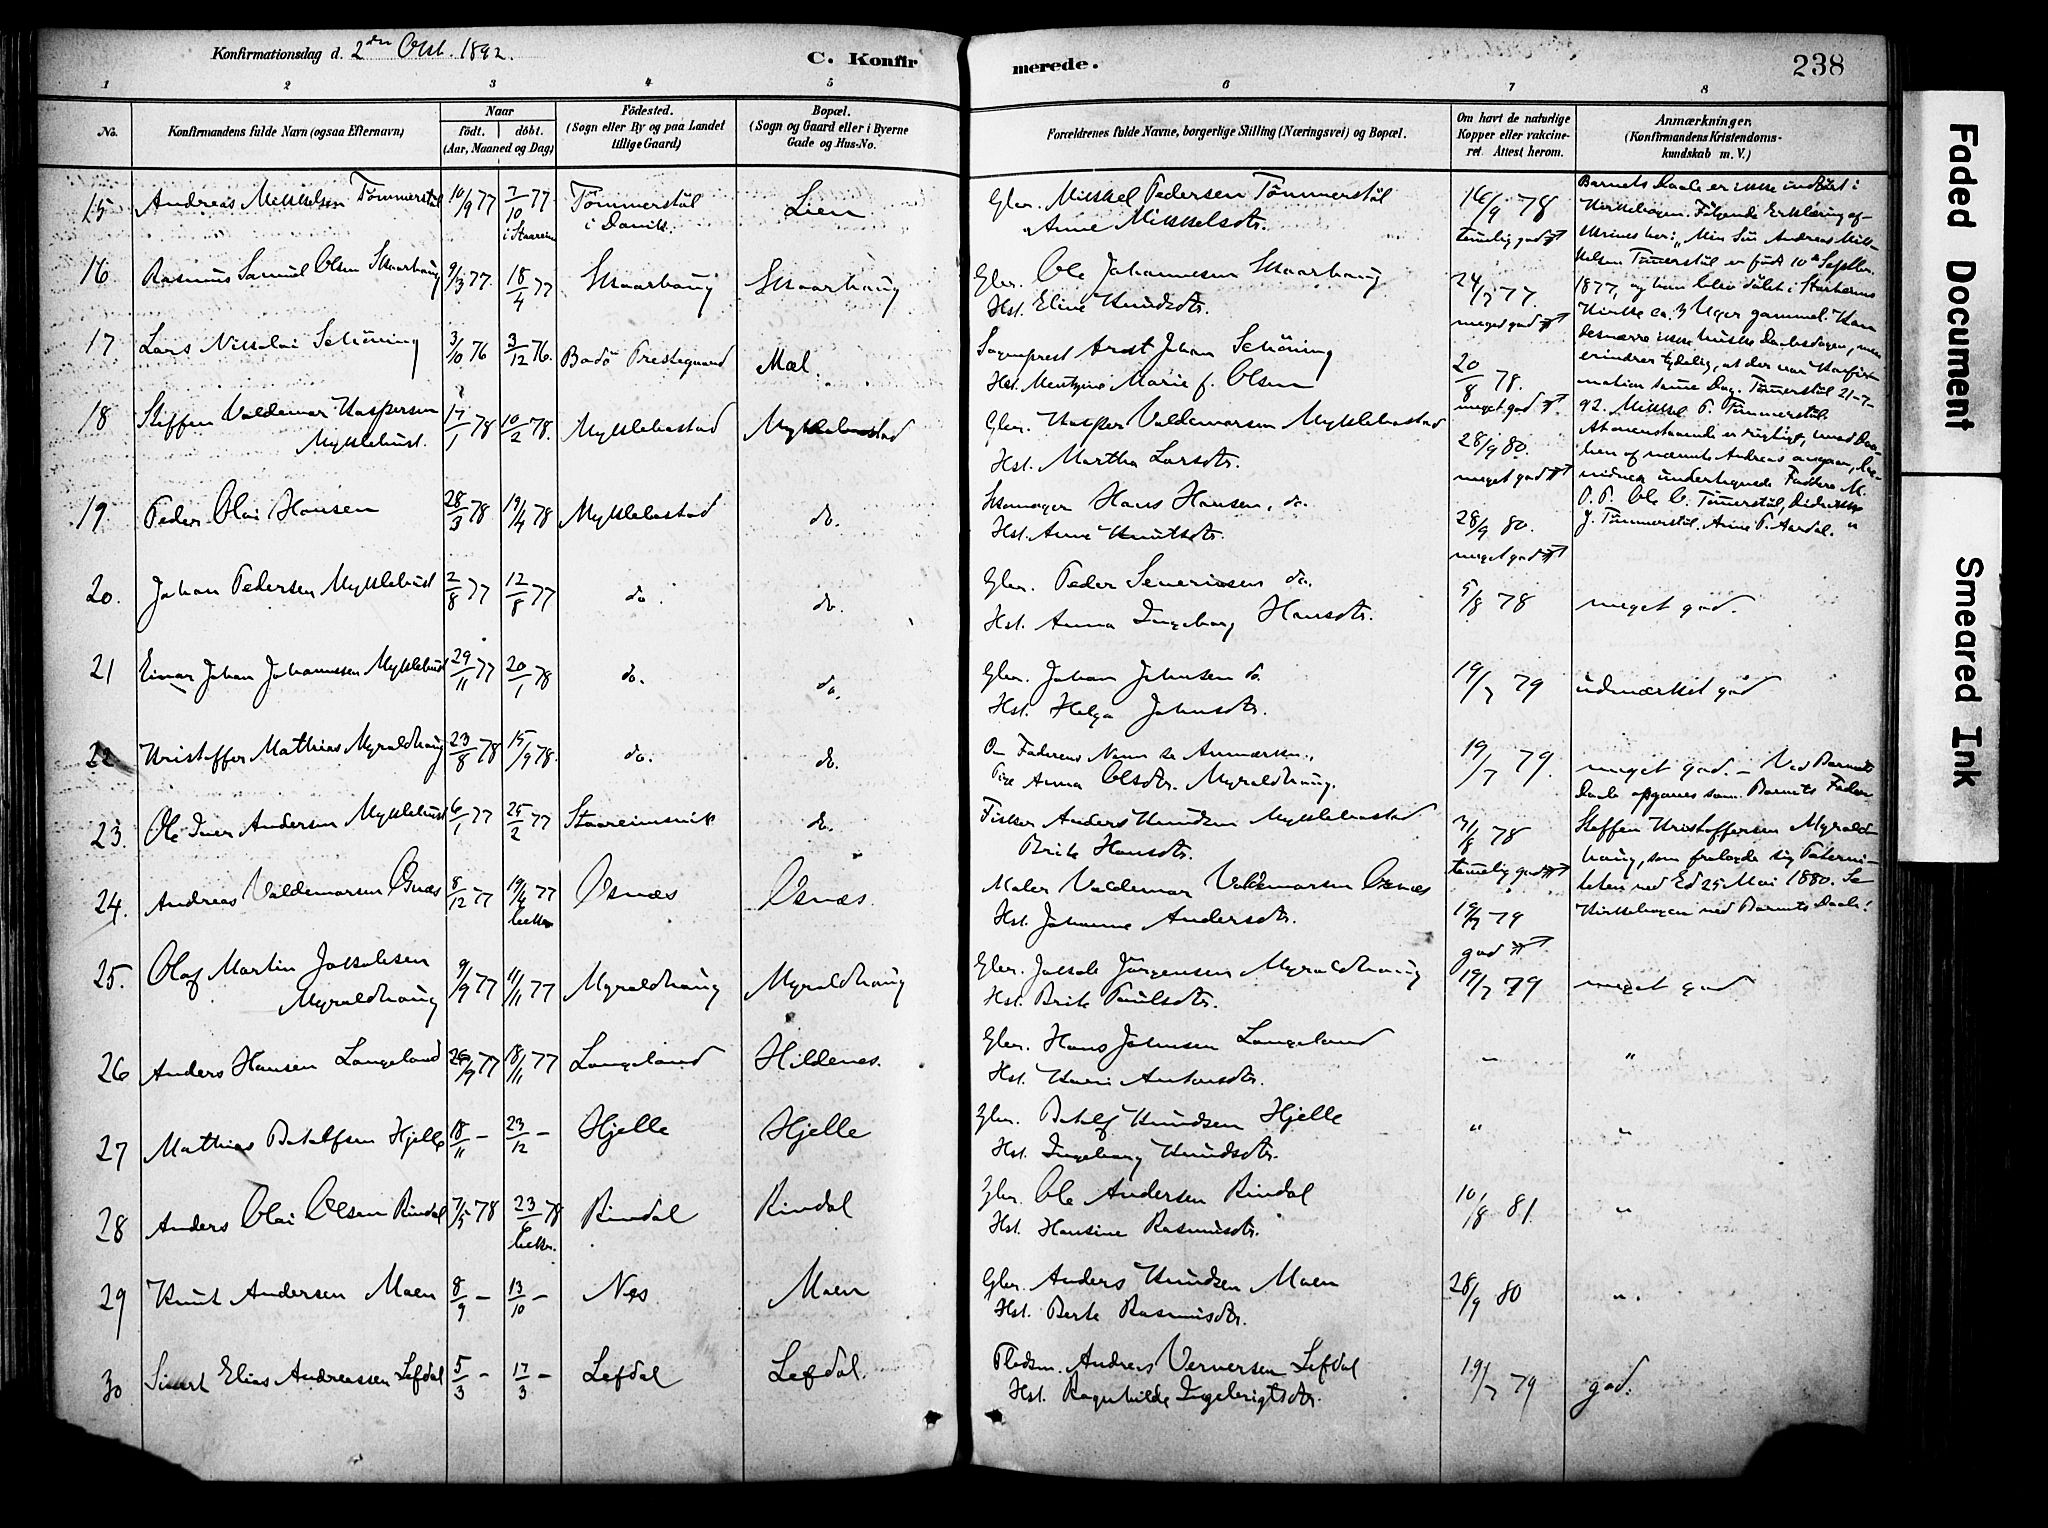 Konfirmationsdag d. 2den Okt. 1892.
C. Konfirmerede.
238
1 2 3 4 5 6 7 8
No.
Konfirmandens fulde Navn (ogsaa Efternavn)
Naar
födt. | döbt.
(Aar, Maaned og Dag)
Födested.
(Sogn eller By og paa Landet
tillige Gaard)
Bopæl.
(Sogn og Gaard eller i Byerne
Gade og Hus-No.
Forældrenes fulde Navne, borgerlige Stilling (Næringsvei) og Bopæl.
Om havt de naturlige
Kopper eller vakcine-
ret. Attest herom.
Anmærkninger,
(Konfirmandens Kristendoms-
kundskab m. V.)
15 Andreas Mikkelsen Tømmerstøl 10/9 77 7/10 77 i Staareim Tømmerstøl i Davik. Lien
Gbr. Mikkel Pedersen Tømmerstøl
Anne Mikkelsdtr.
16/9 78
temelig god
Barnets Daab er ikke indført i
Kirkebogen. Følgende Erklæring af-
skrives her: "Min Søn Andreas Mik-
kelsen Tømerstøl er født 10de Septbr.
1877, og han blev døbt i Starheims
Kirke ca. 3 Uger gammel. Kan
desværre ikke huske Daabsdagen, men
erindrer tydelig, at der var Konfir-
mation samme Dag. Tømerstøl 21-7-
92. Mikkel P. Tømmerstøl.
16 Rasmus Samuel Olsen Skaarhaug 9/3 77. 18/4 77 Skaarhaug Skaarhaug
Gbr. Ole Johannesen Skaarhaug
Hst. Eline Knudsdtr.
24/7 77.
meget god
17 Lars Nikolai Schöning 3/10 76 3/12 76. Bodö Prestegaard Mæl.
Sogneprest Arnt Johan Schöning
Hst. Marie f. Olsen
20/8 78.
meget god
18 Steffen Valdemar Kaspersen
Myklebust. 17/1 78 10/2 78. Myklebustad Myklebustad
Gbr. Kasper Valdemarsen Myklebustad
Hst. Martha Larsdtr.
28/9 80.
meget god
19 Peder Olai Hansen 28/3 78 19/4 78 Myklebustad do.
Hans Hansen, do.
Hst. Anne Knutsdtr.
28/9 80.
meget god
20. Johan Pedersen Myklebust 2/8 77 12/8 77 do. do.
Gbr. Peder Severinsen do.
Hst. Anna Ingeborg Hansdtr.
5/8 78 meget god.
21 Einar Johan Johannesen Myklebust 29/11 77 20/1 78 do. do.
Gbr. Johan Johnsen do.
Hst. Helga Johnsdtr.
19/7 79 udmærket god
22 Kristoffer Mathias Myraldhaug 23/8 78 15/9 78. do. do.
Om Faderens Navn se Anmærkn.,
Pige Anna Olsdtr. Myraldhaug.
19/7 79. meget god. – Ved Barnets
Daab opgaves som Barnets Fader
Steffen Kristoffersen Myrald-
haug, som fralagde sig Paterni-
teten ved Ed 25 Mai 1880. Se
Kirkebogen ved Barnets Daab!
23. Ole Iver Andersen Myklebust 6/1 77 25/2 77 Staareimsvik do.
Fisker Anders Knudsen Myklebustad
Brite Hansdtr.
31/8 78
temelig god
24. Andreas Valdemarsen Osnæs 8/12 77 Osnæs Osnæs.
Maler Valdemar Valdemarsen Osnæs
Hst. Johanne Andersdtr.
19/7 79
god
25. Olaf Martin Jakobsen
Myraldhaug 9/9 77 11/11 77 Myraldhaug Myraldhaug
Gbr. Jakob Jørgensen Myraldhaug
Hst. Brite Paulsdtr.
19/7 79 meget god
26 Anders Hansen Langeland 26/9 77 18/11 77 Langeland Hildenes.
Gbr. Hans Johnsen Langeland
Hst. Kari Antonsdtr.
" "
27 Mathias Botolfsen Hjelle 18/11 – 23/12 – Hjelle Hjelle
Gbr. Botolf Knudsen Hjelle
Hst. Ingeborg Knudsdtr.
" "
28 Anders Olai Olsen Rindal 7/5 78 23/6 78 Rindal Rindal
Gbr. Ole Andersen Rindal
Hst. Hansine Rasmusdtr.
10/8 81. "
29 Knut Andersen Maen 8/9 – 13/10 – Nes Maen
Gbr. Anders Knudsen Maen
Hst. Berte Rasmusdtr.
28/9 80 "
30 Sivert Elias Andreassen Lefdal 5/3 – 17/3 – Lefdal Lefdal.
Pladsm. Andreas Lefdal
Hst. Ragnhilde Ingebrigtsdtr.
19/7 79 god.
Faded Document
Smeared Ink